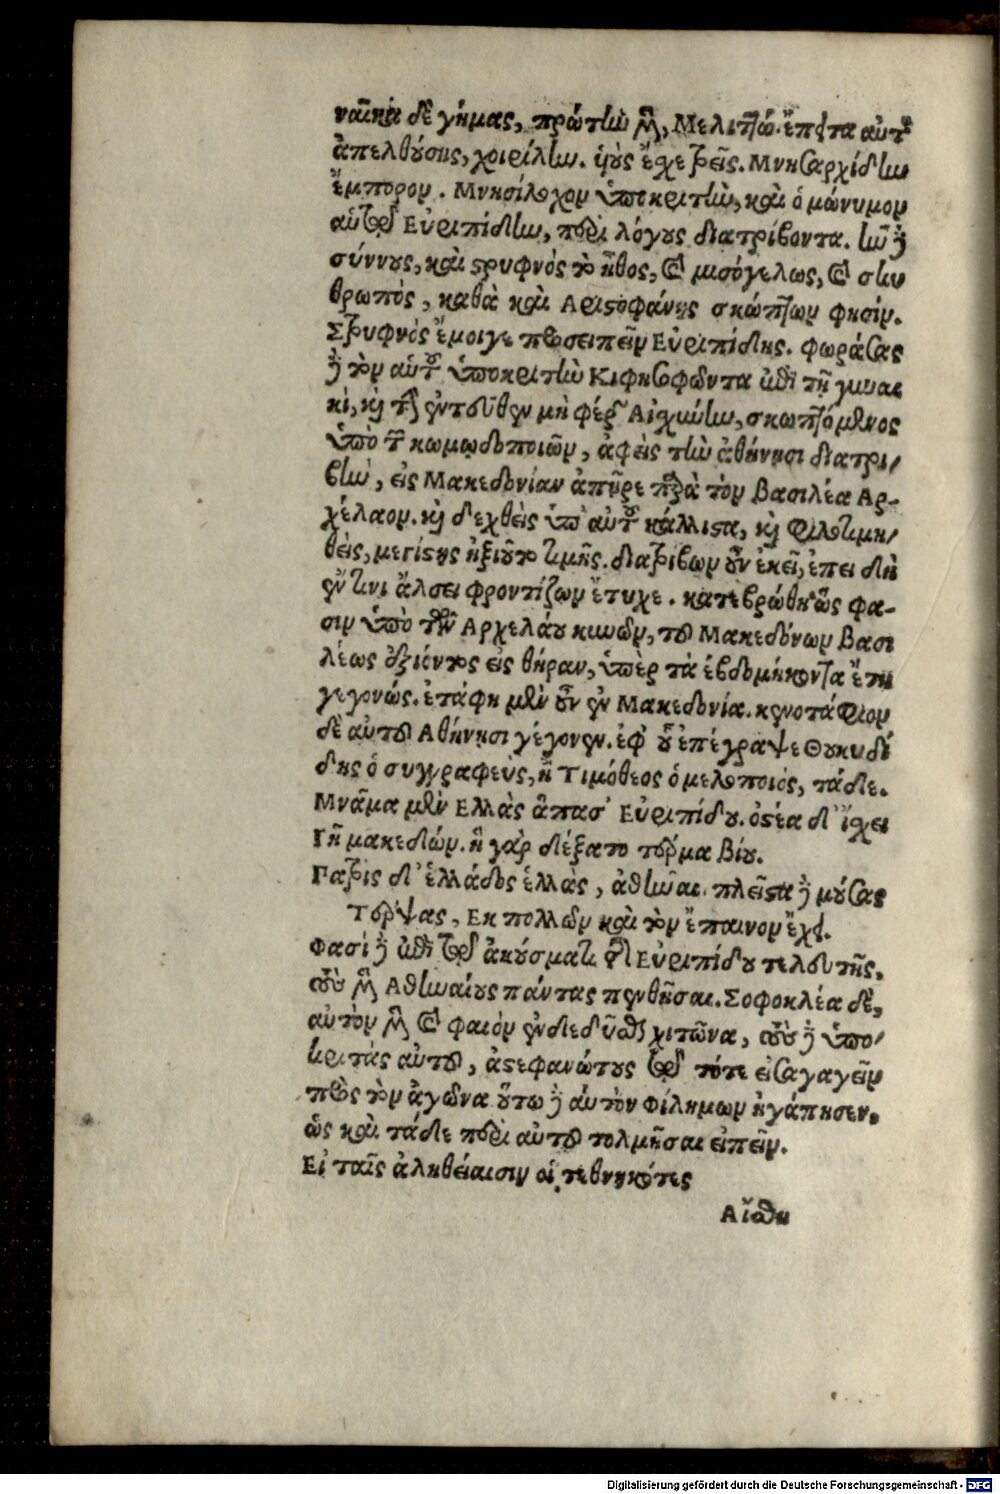 ναῖκα δὲ γήμας, πρώτην μὲν, Μελιτώ. ἔπειτα αὐτῆς
ἀπελθούσης, χοιρίλην. υἱοὺς ἔχε τρεῖς. Μνησαρχίδην
ἔμπορον. Μνησίλοχον ὑποκριτὴν, καὶ ὁ μώνυμον
αὐτῷ Εὐριπίδην, περὶ λόγους διατρίβοντα. ἦν δὲ
σύννους, καὶ στρυφνὸς τὸ ἦθος, καὶ μισόγελως, καὶ σκυ
θρωπὸς, καθὰ καὶ Αριστοφάνης σκώπτων φησίν.
Στρυφνὸς ἔμοιγε προσειπεῖν Εὐριπίδης. φωράσας
δὲ τὸν αὑτοῦ ὑποκριτὴν Κιφησοφῶντα ἐπὶ τῇ γυναι
κὶ, καὶ τὴν ἐντεῦθεν μὴ φέρων Αἰχύνην, σκωπτόμενος
ὑπὸ τῶν κωμῳδοποιῶν, ἀφεὶς τὴν ἀθήνησι διατρι/
βὴν, εἰς Μακεδονίαν ἀπῇρε παρὰ τὸν βασιλέα Αρ-
χέλαον. καὶ δεχθεὶς ὑπ' αὐτοῦ κάλλιστα, καὶ φιλοτιμη/
θεὶς, μεγίστης ἠξιοῦτο τιμῆς. διατρίβων οὖν ἐκεῖ, ἐπει δὴ
ἔν τινι ἄλσει φροντίζων ἔτυχε. κατεβρώθη ὥς φα-
σιν ὑπὸ τῶν Αρχελάου κυνῶν, τοῦ Μακεδόνων βασι
λέως ἐξιόντος εἰς θήραν, ὑπὲρ τὰ ἑβδομήκοντα ἔτη
γεγονώς. ἐτάφη μὲν οὖν ἐν Μακεδονία. κενοτάφιον
δὲ αὐτοῦ Αθήνησι γέγονεν. ἐφ' οὗ ἐπέγραψε Θουκυδί
δης ὁ συγγραφεὺς, ἢ Τιμόθεος ὁ μελοποιός, τάδε.
Μνᾶμα μὲν Ελλὰς ἅπασ' Εὐριπίδου. ὀστέα δ' ἴχει
Γῆ μακεδών. ἣ γὰρ δέξατο τέρμα βίου.
Πατρὶς δ' ἑλλάδος ἑλλὰς, ἀθῆναι. πλεῖστα δὲ μούσας
Τέρψας, Εκ πολλῶν καὶ τὸν ἔπαινον ἔχει.
Φασὶ δὲ ἐπὶ τῷ ἀκούσματι τῆς Εὐριπίδου τελευτῆς,
τοὺς μὲν Αθηναίους πάντας πενθῆσαι. Σοφοκλέα δὲ,
αὐτὸν μὲν καὶ φαιὸν ἐνδεδῦσθαι χιτῶνα, τοὺς δὲ ὑπο/
κριτὰς αὐτοῦ, ἀστεφανώτους τῷ τότε εἰσαγαγεῖν
πρὸς τὸν ἀγῶνα οὕτω δὲ αὐτὸν Φιλήμων ἠγάπησεν,
ὡς καὶ τάδε περὶ αὐτοῦ τολμῆσαι εἰπεῖν.
Εἰ ταῖς ἀληθείαισιν οἱ τεθνηκότες
Αἴσθη
Digitalisierung gefördert durch die Deutsche Forschungsgemeinschaft - DFG